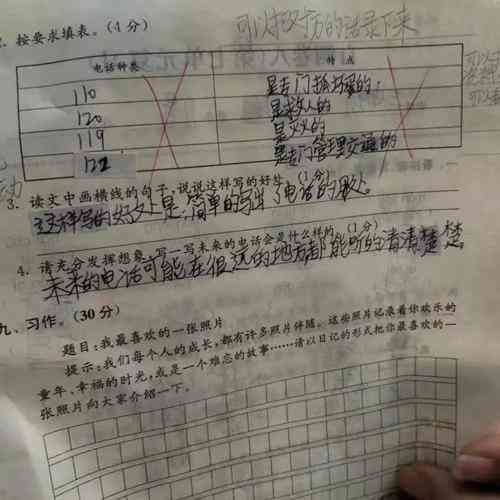 可以把对方的话录下来
2. 按要求填表。(4分)
电话种类 特点
110 是专门抓坏蛋的
120 是救人的
119 是灭火的
122 是专门管理交通的
3. 读文中画横线的句子,说说这样写的好处。(1分)
这样写的好处是:简单的写出了电话的用处。
4. 请充分发挥想象,写一写未来的电话会是什么样的。(1分)
未来的电话可能在很远的地方都能听的清清楚楚
九、习作。(30分)
题目:我最喜欢的一张照片
提示:我们每个人的成长,都有许多照片伴随。这些照片记录着你欢乐的
童年、幸福的时光,或是一个难忘的故事……请以日记的形式把你最喜欢的一
张照片向大家介绍一下。